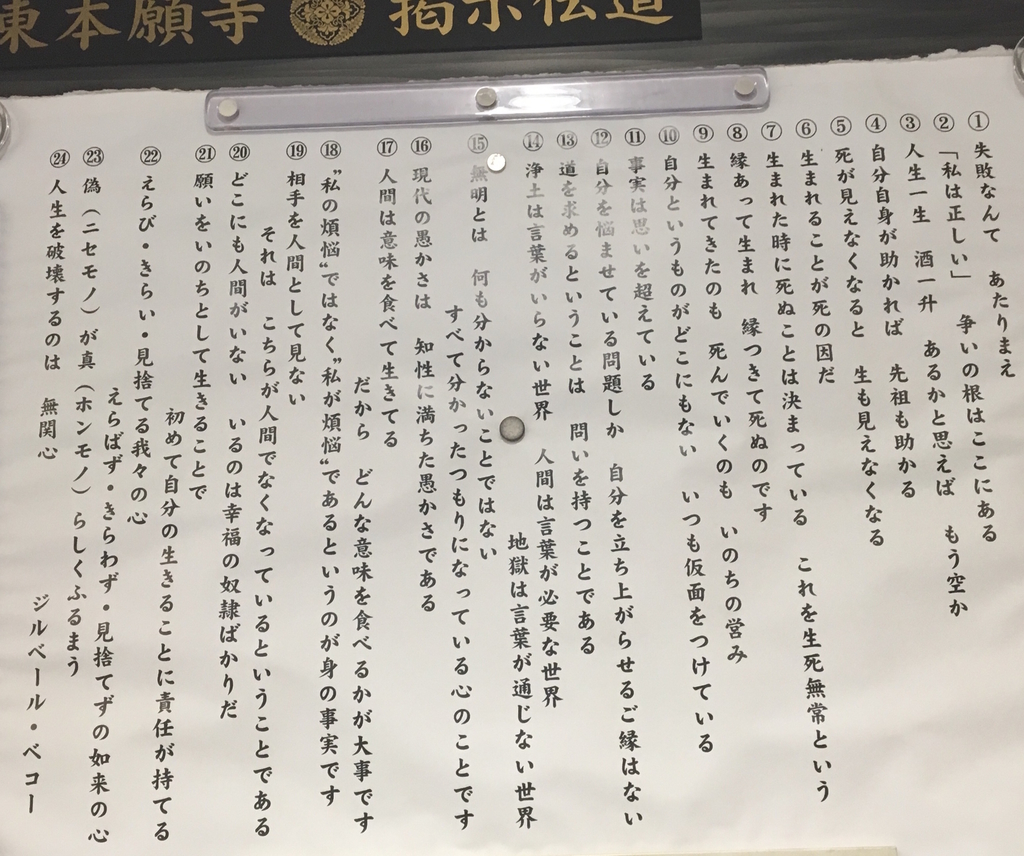 東本願寺 掲示伝道
① 失敗なんて あたりまえ
② 「私は正しい」 争いの根はここにある
③ 人生一生 酒一升 あるかと思えば もう空か
④ 自分自身が助かれば 先祖も助かる
⑤ 死が見えなくなると 生も見えなくなる
⑥ 生まれることが死の因だ
⑦ 生まれた時に死ぬことは決まっている これを生死無常という
⑧ 縁あって生まれ 縁つきて死ぬのです
⑨ 生まれてきたのも 死んでいくのも いのちの営み
⑩ 自分というものがどこにもない いつも仮面をつけている
⑪ 事実は思いを超えている
⑫ 自分を悩ませている問題しか 自分を立ち上がらせるご縁はない
⑬ 道を求めるということは 問いを持つことである
⑭ 浄土は言葉がいらない世界 人間は言葉が必要な世界
地獄は言葉が通じない世界
⑮ 無明とは 何も分からないことではない
すべて分かったつもりになっている心のことです
⑯ 現代の愚かさは 知性に満ちた愚かさである
⑰ 人間は意味を食べて生きてる
だから どんな意味を食べるかが大事です
⑱ “私の煩悩”ではなく“私が煩悩”であるというのが身の事実です
⑲ 相手を人間として見ない
それは こちらが人間でなくなっているということである
⑳ どこにも人間がいない いるのは幸福の奴隷ばかりだ
㉑ 願いをいのちとして生きることで
初めて自分の生きることに責任が持てる
㉒ えらび・きらい・見捨てる我々の心
えらばず・きらわず・見捨てずの如来の心
㉓ 偽（ニセモノ）が真（ホンモノ）らしくふるまう
㉔ 人生を破壊するのは 無関心
ジルベール・ベコー